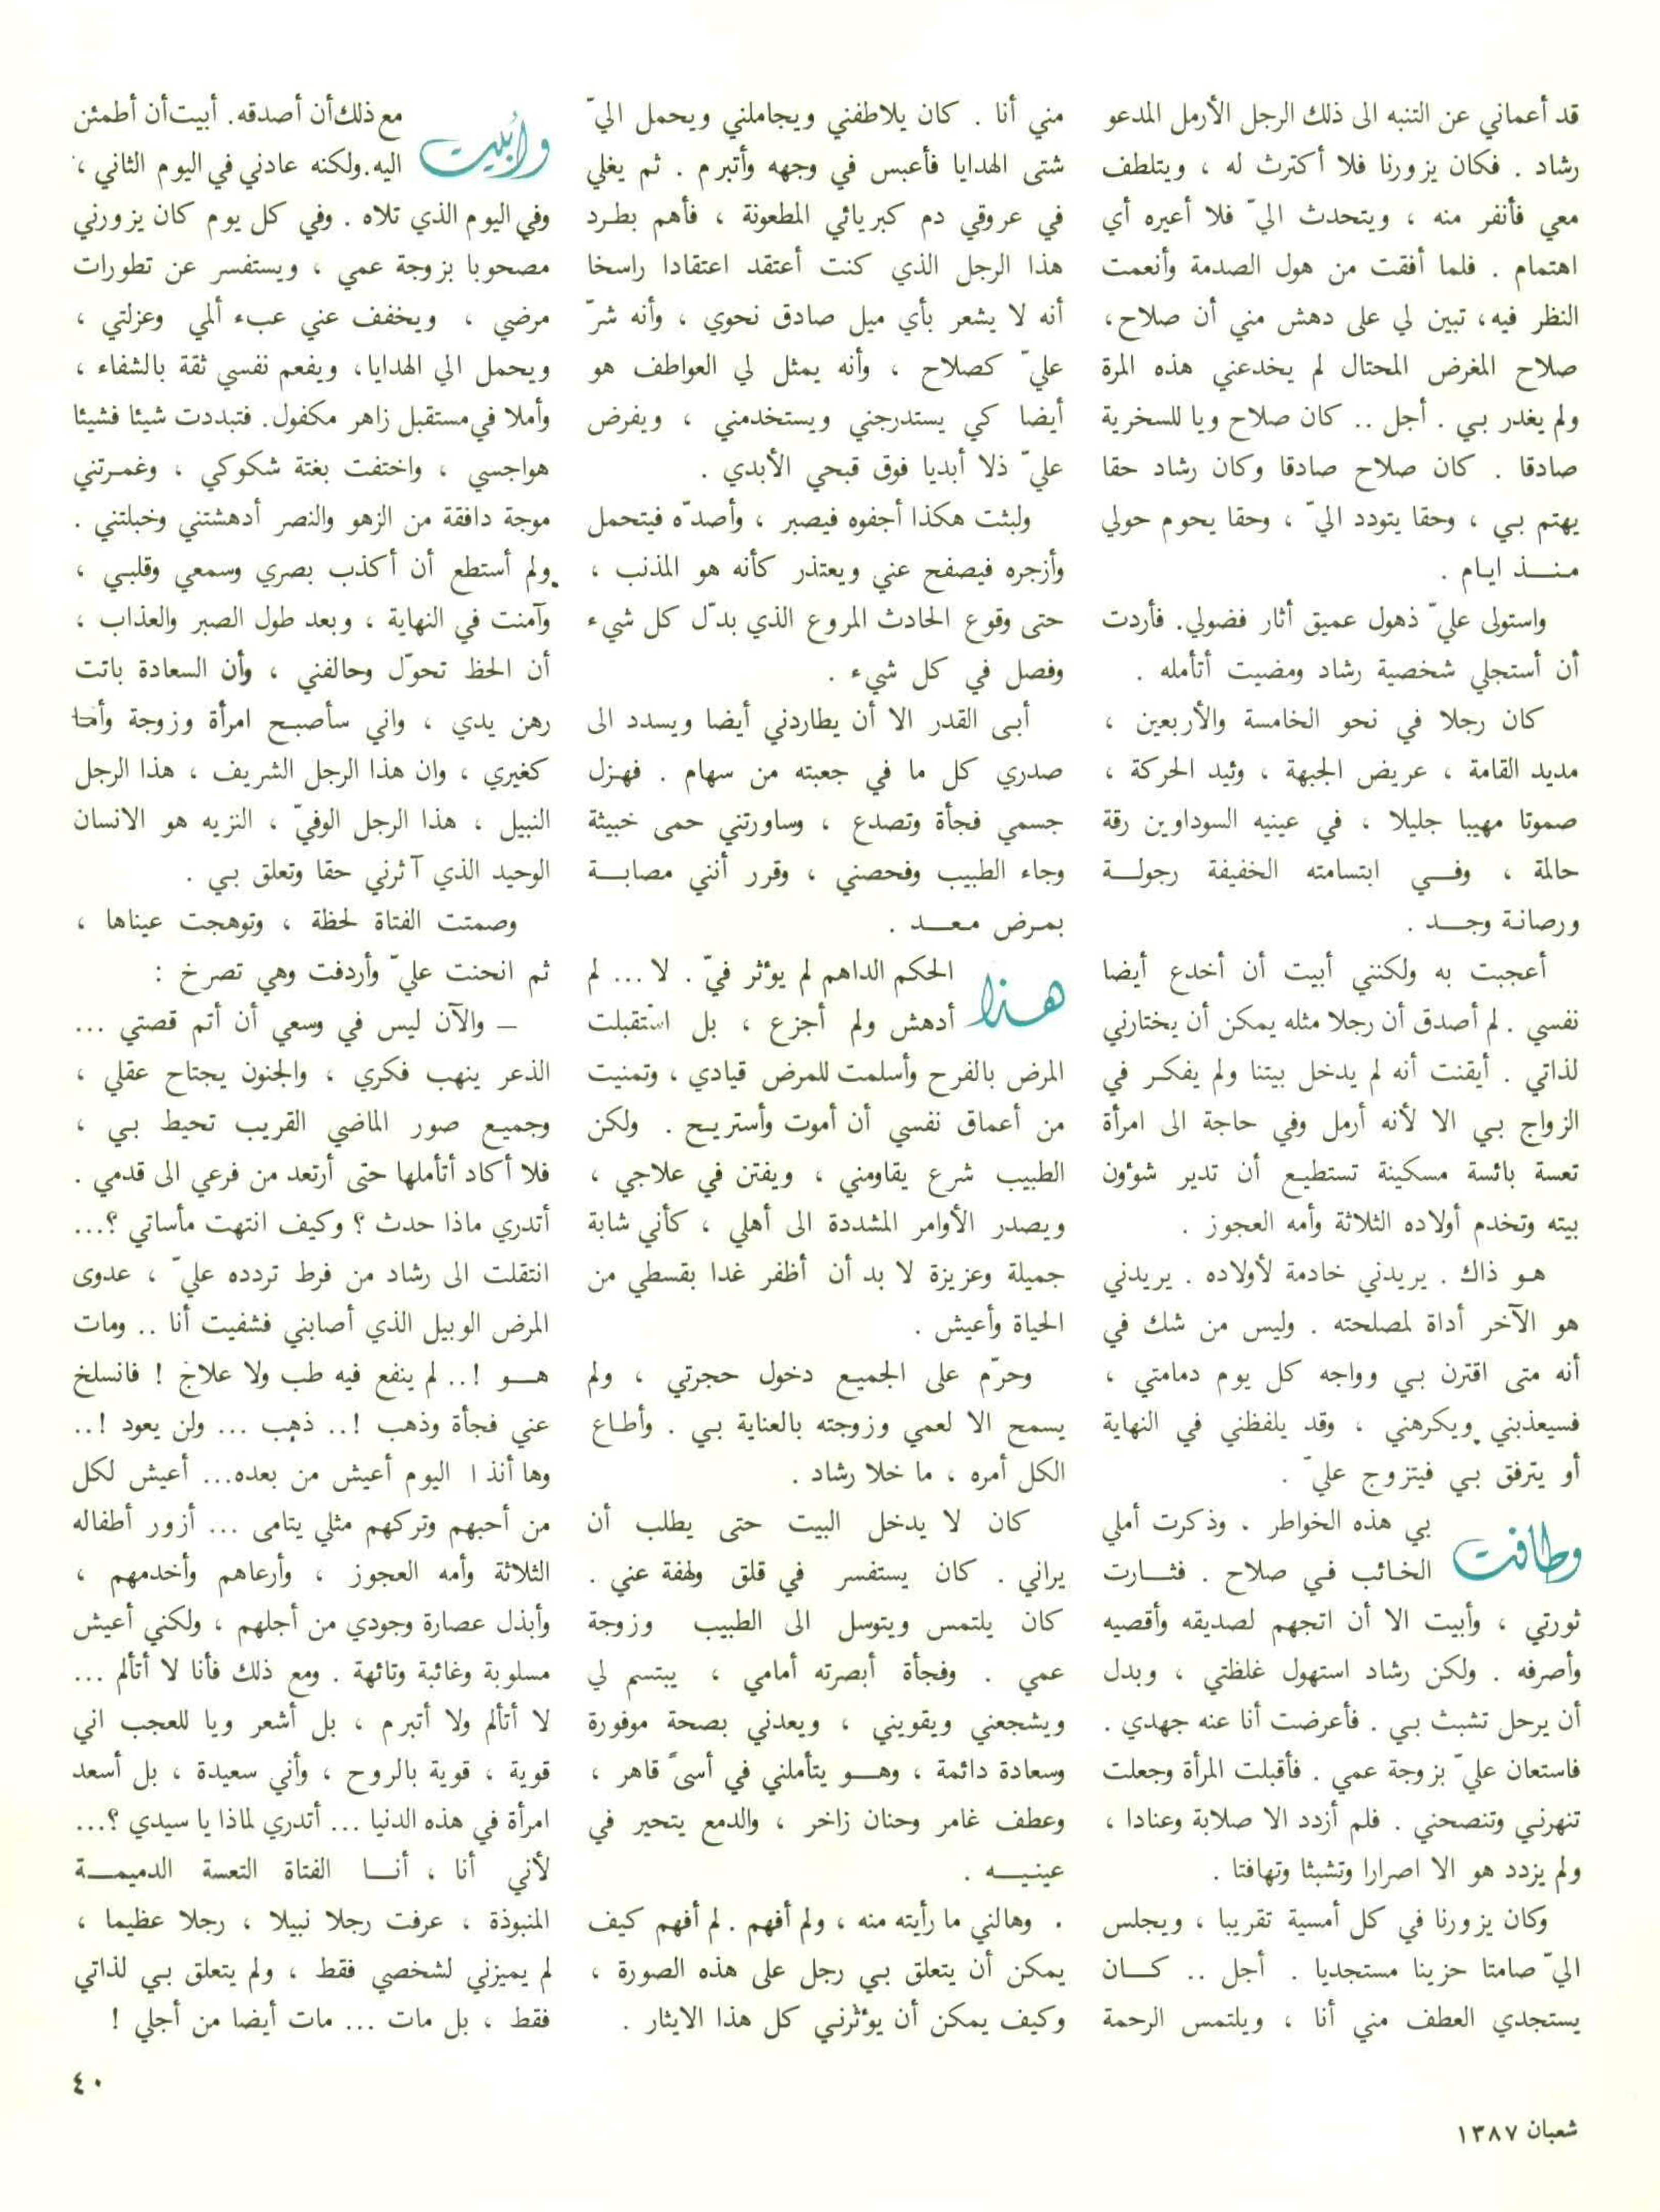 قد أعماني عن التنبه الى ذلك الرجل الأرمل المدعو
رشاد . فكان يزورنا فلا أكترث له ، ويتلطف
معي فأنفر منه ، ويتحدث اليّ فلا أعيره أي
اهتمام . فلما أفقت من هول الصدمة وأنعمت
النظر فيه، تبين لي على دهش مني أن صلاح،
صلاح المغرض المحتال لم يخدعني هذه المرة
ولم يغدر بي . أجل .. كان صلاح ويا للسخرية
صادقا . كان صلاح صادقا وكان رشاد حقا
يهتم بي ، وحقا يتودد اليّ ، وحقا يحوم حولي
منــذ ايام .
واستولى عليّ ذهول عميق أثار فضولي. فأردت
أن أستجلي شخصية رشاد ومضيت أتأمله .
كان رجلا في نحو الخامسة والأربعين ،
مديد القامة ، عريض الجبهة ، وئيد الحركة ،
صموتا مهيبا جليلا ، في عينيه السوداوين رقة
حالمة ، وفــي ابتسامته الخفيفة رجولــة
ورصانة وجــد .
أعجبت به ولكنني أبيت أن أخدع أيضا
نفسي . لم أصدق أن رجلا مثله يمكن أن يختارني
لذاتي . أيقنت أنه لم يدخل بيتنا ولم يفكـر في
الزواج بي الا لأنه أرمل وفي حاجة الى امرأة
تعسة بائسة مسكينة تستطيع أن تدير شؤون
بيته وتخدم أولاده الثلاثة وأمه العجوز .
هـو ذاك . يريدني خادمة لأولاده . يريدني
هو الآخر أداة لمصلحته . وليس من شك في
أنه متى اقترن بي وواجه كل يوم دمامتي ،
فسيعذبني ويكرهني ، وقد يلفظني في النهاية
أو يترفق بي فيتزوج عليّ .
وطافت بي هذه الخواطر . وذكرت أملي
الخائب في صلاح . فثــارت
ثورتي ، وأبيت الا أن اتجهم لصديقه وأقصيه
وأصرفه . ولكن رشاد استهول غلظتي ، وبدل
أن يرحل تشبث بي . فأعرضت أنا عنه جهدي .
فاستعان عليّ بزوجة عمي . فأقبلت المرأة وجعلت
تنهرني وتنصحني . فلم أزدد الا صلابة وعنادا ،
ولم يزدد هو الا اصرارا وتشبثا وتهافتا .
وكان يزورنا في كل أمسية تقريبا ، ويجلس
اليّ صامتا حزينا مستجديا . أجل .. كــان
يستجدي العطف مني أنا ، ويلتمس الرحمة
مني أنا . كان يلاطفني ويجاملني ويحمل اليّ
شتى الهدايا فأعبس في وجهه وأتبرم . ثم يغلي
في عروقي دم كبريائي المطعونة ، فأهم بطـرد
هذا الرجل الذي كنت أعتقد اعتقادا راسخا
أنه لا يشعر بأي ميل صادق نحوي ، وأنه شرّ
عليّ كصلاح ، وأنه يمثل لي العواطف هو
أيضا كي يستدرجني ويستخدمني ، ويفرض
عليّ ذلا أبديا فوق قبحي الأبدي .
ولبثت هكذا أجفوه فيصبر ، وأصدّه فيتحمل
وأزجره فيصفح عني ويعتذر كأنه هو المذنب ،
حتى وقوع الحادث المروع الذي بدّل كل شيء
وفصل في كل شيء .
أبى القدر الا أن يطاردني أيضا ويسدد الى
صدري كل ما في جعبته من سهام . فهـزل
جسمي فجأة وتصدع ، وساورتني حمى خبيثة
وجاء الطبيب وفحصني ، وقرر أنني مصابــة
بمـرض معــد .
هذا الحكم الداهم لم يؤثر فيّ . لا ... لم
أدهش ولم أجزع ، بل استقبلت
المرض بالفرح وأسلمت للمرض قيادي ، وتمنيت
من أعماق نفسي أن أموت وأستريـح . ولكن
الطبيب شرع يقاومني ، ويفتن في علاجي ،
ويصدر الأوامر المشددة الى أهلي ، كأني شابة
جميلة وعزيزة لا بد أن أظفر غدا بقسطي من
الحياة وأعيش .
وحرّم على الجميع دخول حجرتي ، ولم
يسمح الا لعمي وزوجته بالعناية بي . وأطـاع
الكل أمره ، ما خلا رشاد .
كان لا يدخل البيت حتى يطلب أن
يراني . كان يستفسر في قلق ولهفة عني .
كان يلتمس ويتوسل الى الطبيب وزوجة
عمي . وفجأة أبصرته أمامي ، يبتسم لي
ويشجعني ويقويني ، ويعدني بصحة موفورة
وسعادة دائمة ، وهــو يتأملني في أسىً قاهر ،
وعطف غامر وحنان زاخر ، والدمع يتحير في
عينيــه .
وهالني ما رأيته منه ، ولم أفهم . لم أفهم كيف
يمكن أن يتعلق بي رجل على هذه الصورة ،
وكيف يمكن أن يؤثرني كل هذا الايثار .
وأبيت مع ذلك أن أصدقه. أبيت أن أطمئن
اليه. ولكنه عادني في اليوم الثاني ،
وفي اليوم الذي تلاه . وفي كل يوم كان يزورني
مصحوبا بزوجة عمي ، ويستفسر عن تطورات
مرضي ، ويخفف عني عبء ألمي وعزلتي ،
ويحمل الي الهدايا، ويفعم نفسي ثقة بالشفاء ،
وأملا في مستقبل زاهر مكفول. فتبددت شيئا فشيئا
هواجسي ، واختفت بغتة شكوكي ، وغمـرتني
موجة دافقة من الزهو والنصر أدهشتني وخبلتني .
ولم أستطع أن أكذب بصري وسمعي وقلبي ،
وآمنت في النهاية ، وبعد طول الصبر والعذاب ،
أن الحظ تحوّل وحالفني ، وأن السعادة باتت
رهن يدي ، واني سأصبـح امرأة وزوجة وأمـا
كغيري ، وان هذا الرجل الشريف ، هذا الرجل
النبيل ، هذا الرجل الوفيّ ، النزيه هو الانسان
الوحيد الذي آثرني حقا وتعلق بي .
وصمتت الفتاة لحظة ، وتوهجت عيناها ،
ثم انحنت عليّ وأردفت وهي تصرخ :
— والآن ليس في وسعي أن أتم قصتي ...
الذعر ينهب فكري ، والجنون يجتاح عقلي ،
وجميـع صور الماضي القريب تحيط بي ،
فلا أكاد أتأملها حتى أرتعد من فرعي الى قدمي .
أتدري ماذا حدث ؟ وكيف انتهت مأساتي ؟...
انتقلت الى رشاد من فرط تردده عليّ ، عدوى
المرض الوبيل الذي أصابني فشفيت أنا .. ومات
هــو !.. لم ينفع فيه طب ولا علاج ! فانسلخ
عني فجأة وذهب !.. ذهب ... ولن يعود !..
وها أنذا اليوم أعيش من بعده... أعيش لكل
من أحبهم وتركهم مثلي يتامى ... أزور أطفاله
الثلاثة وأمه العجوز ، وأرعاهم وأخدمهم ،
وأبذل عصارة وجودي من أجلهم ، ولكني أعيش
مسلوبة وغائبة وتائهة . ومع ذلك فأنا لا أتألم ...
لا أتألم ولا أتبرم ، بل أشعر ويا للعجب اني
قوية ، قوية بالروح ، وأني سعيدة ، بل أسعد
امرأة في هذه الدنيا ... أتدري لماذا يا سيدي ؟...
لأني أنا ، أنــا الفتاة التعسة الدميمــة
المنبوذة ، عرفت رجلا نبيلا ، رجلا عظيما ،
لم يميزني لشخصي فقط ، ولم يتعلق بي لذاتي
فقط ، بل مات ... مات أيضا من أجلي !
٤٠
شعبان ١٣٨٧